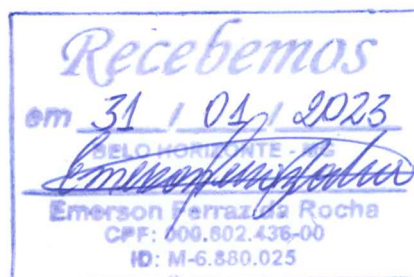 Recebemos
em 31 / 01 / 2023
BELO HORIZONTE -
Emerson Ferraz da Rocha
CPF: 000.602.436-00
ID: M-6.880.025